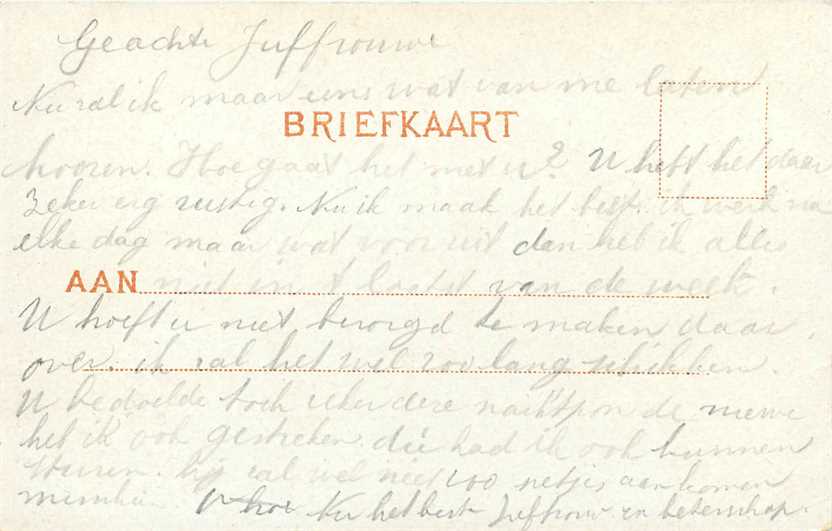 Geachte Juffrouw
Nu zal ik maar eens wat van me laten
BRIEFKAART
hooren. Hoe gaat het met u? U heft het daar
zeker erg rustig. Nu ik maak het best. ik werk nu
elke dag maar wat vooruit dan heb ik alles
AAN niet in 't laatst van de week.
U hoeft u niet bezorgd te maken daar
over. ik zal het wel zoo lang schikken.
U bedoelde toch zeker deze nachtpon de nieuwe
heb ik ook gestreken. die had ik ook kunnen
sturen. hij zal wel niet zoo netjes aankomen
misschien. Nu het beste Juffrouw en beterschap.